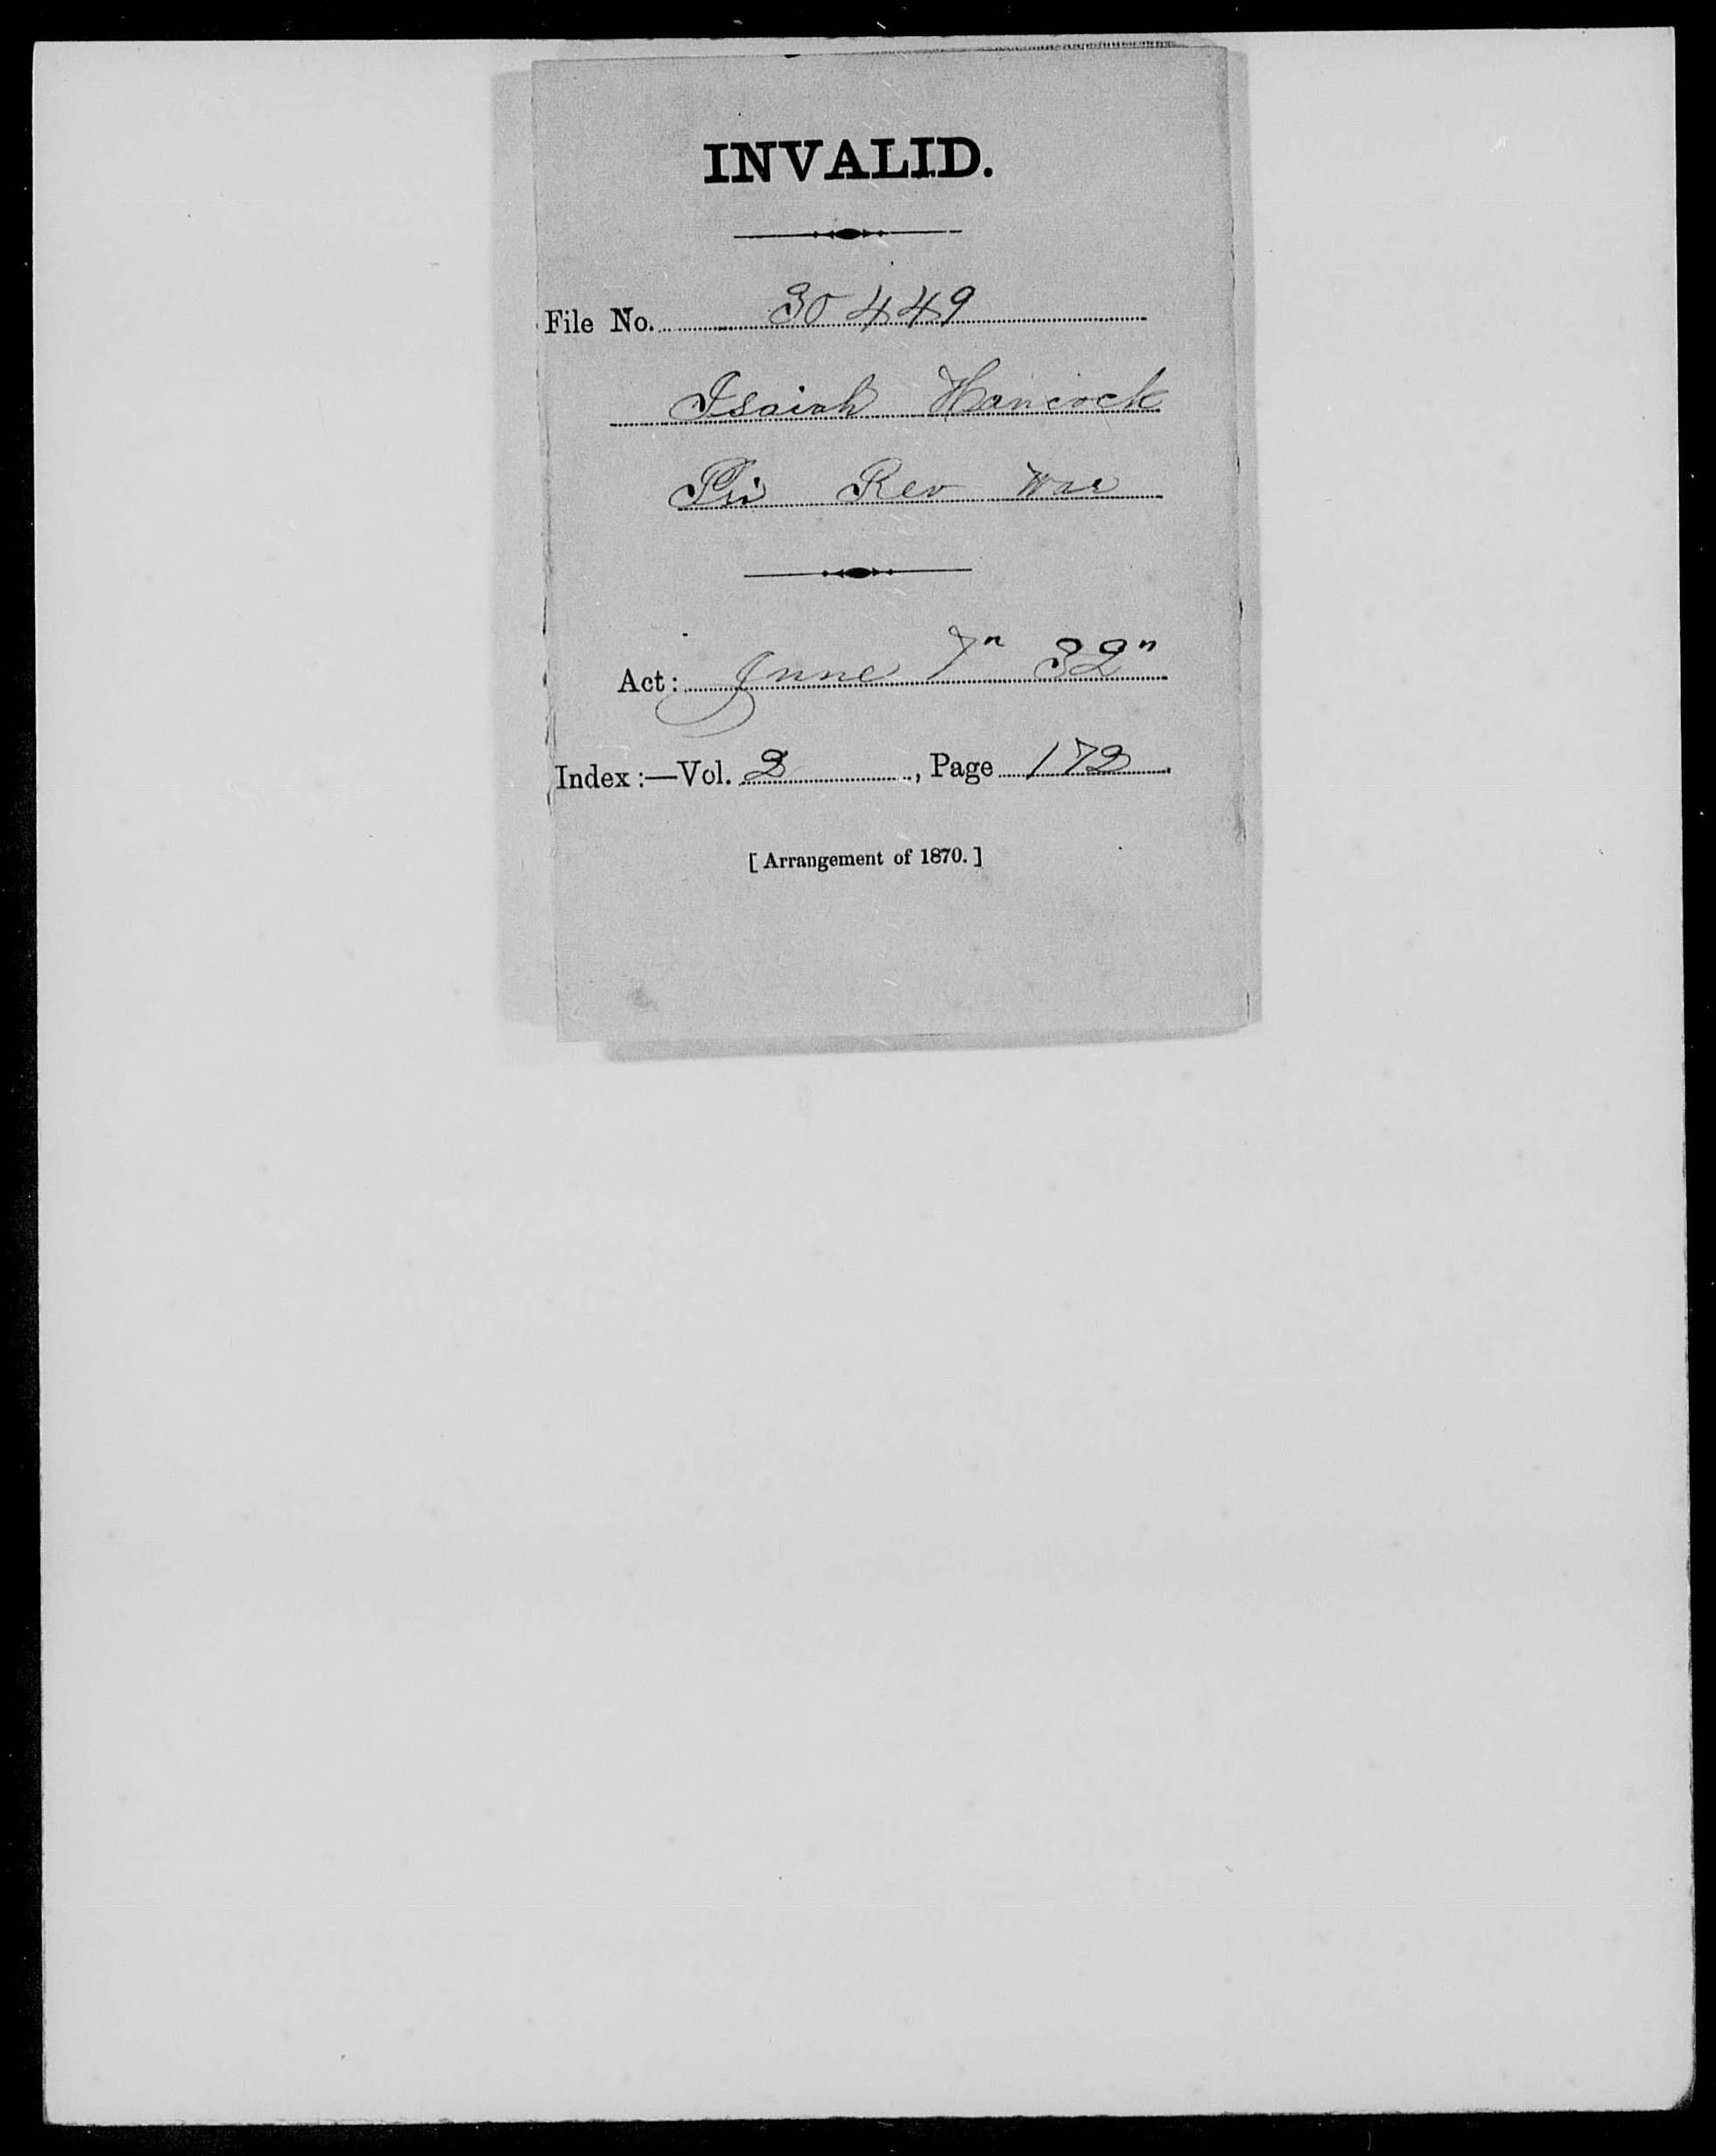 INVALID.
File No. 30449
Isaiah Hancock
Pri Rev War
Act: June 7" 32"
Index:—Vol. 2, Page 172.
[Arrangement of 1870.]